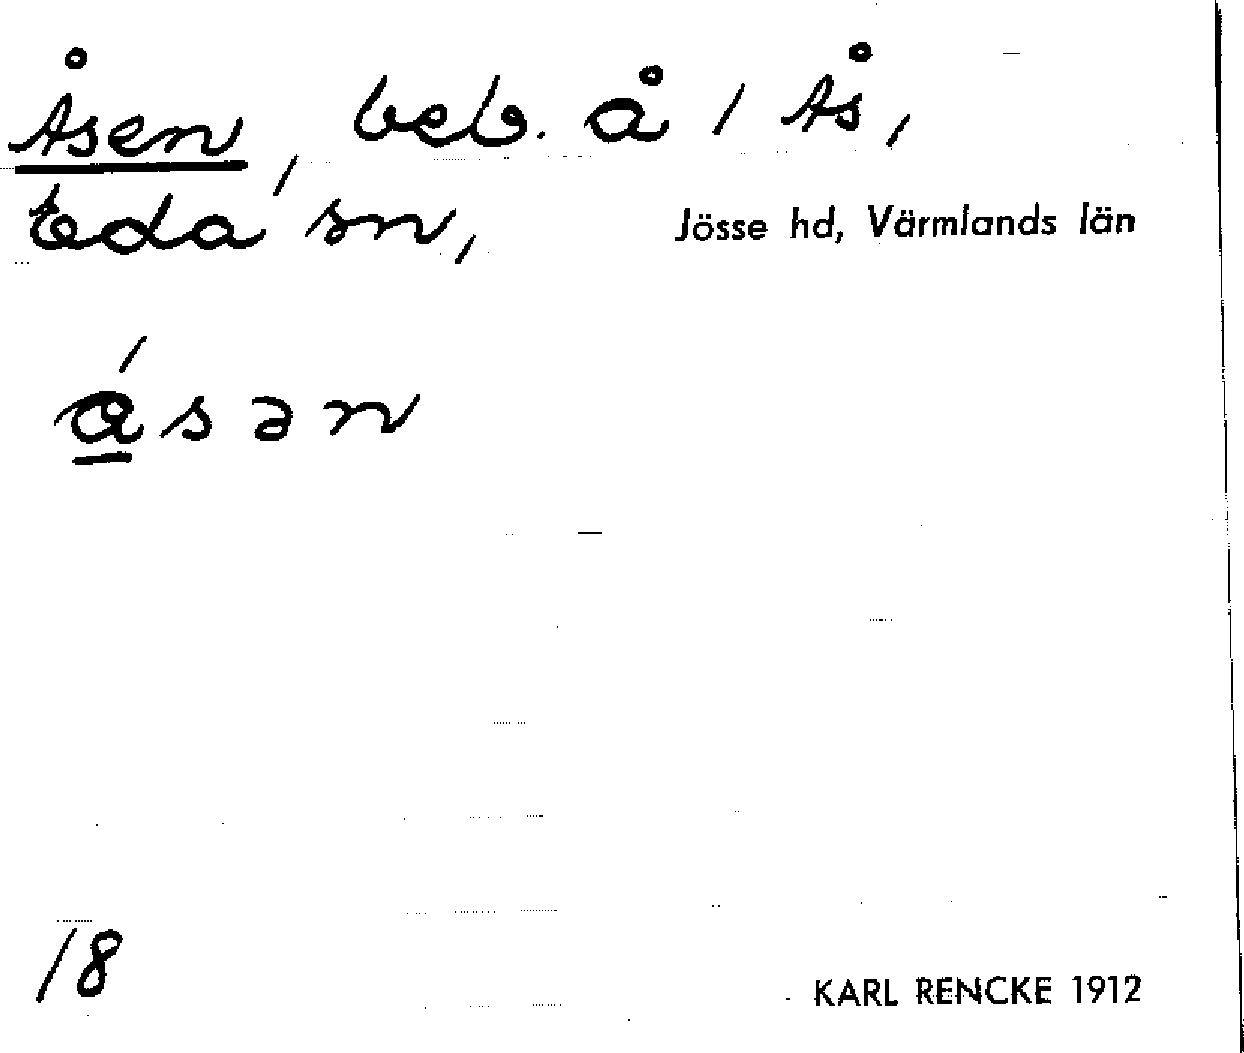 Åsen, beb. å 1 Ås,
Eda sn, Jösse hd, Värmlands län
á̲sən
18
KARL RENCKE 1912